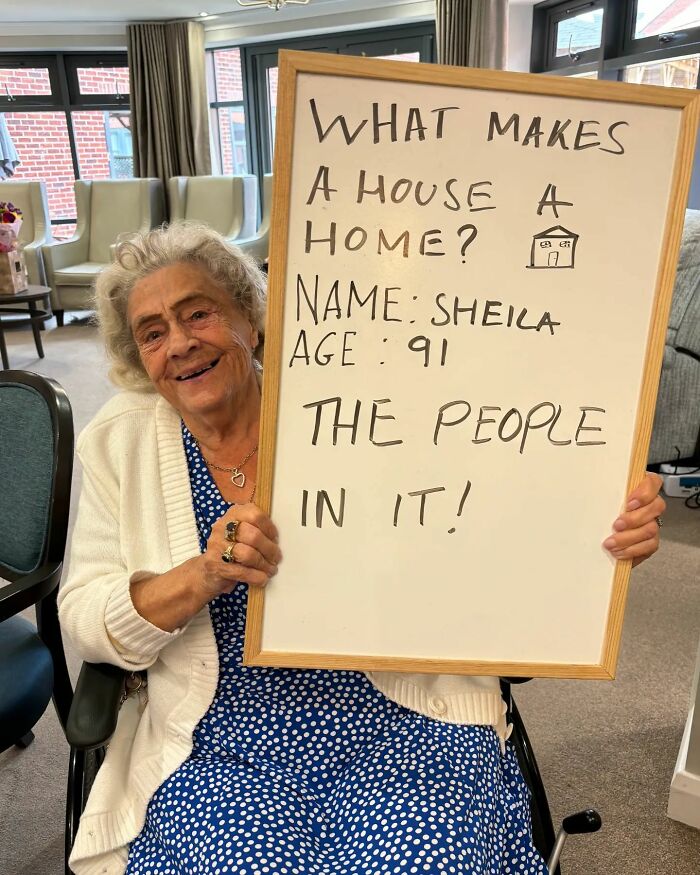 WHAT MAKES
A HOUSE A
HOME?
NAME: SHEILA
AGE : 91
THE PEOPLE
IN IT!